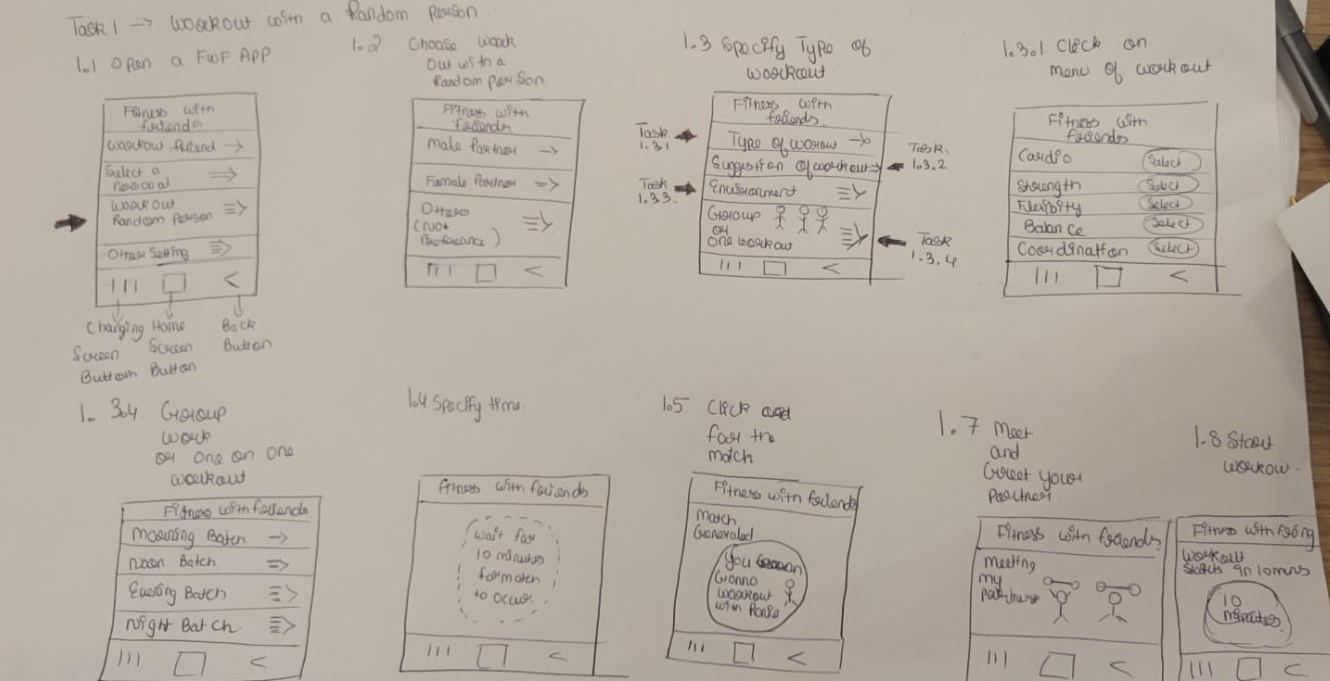 Task 1 → Workout with a Random Person.
1.1 Open a FWF APP
Fitness with
friends
Workout friend →
Select a
Personal
Workout
Random Person
Other Setting
Changing
Screen
Button
Home
Screen
Button
Back
Button
1.2 Choose Work
Out with a
Random person
Fitness with
friends
Male Partner →
Female Partner
Others
(Not
Preference)
1.3 Specify Type of
Workout
Task
1.3.1
Task
1.3.3.
Fitness with
friends.
Type of workout →
Suggestion of workout→
Environment
Group
or
One workout
Task.
1.3.2
Task
1.3.4
1.3.1 Click on
menu of workout
Fitness with
friends
Cardio Select
Strength Select
Flexibity Select
Balance Select
Coordination Select
1. 3.4. Group
work
or one on one
workout
Fitness with friends
Morning Batch →
Noon Batch
Evening Batch
Night Batch.
1.4 Specify time.
Fitness with friends
Wait for
10 minutes
for match
to occur
1.5 Click and
for the
match
Fitness with friends
Match
Generated
You
Gonna
Workout
with
1.7 Meet
and
Greet your
Partner
Fitness with friends
Meeting
my
partner
1.8 Start
workou.
Fitness with
Workout
Starts in 10 mins
10
minutes